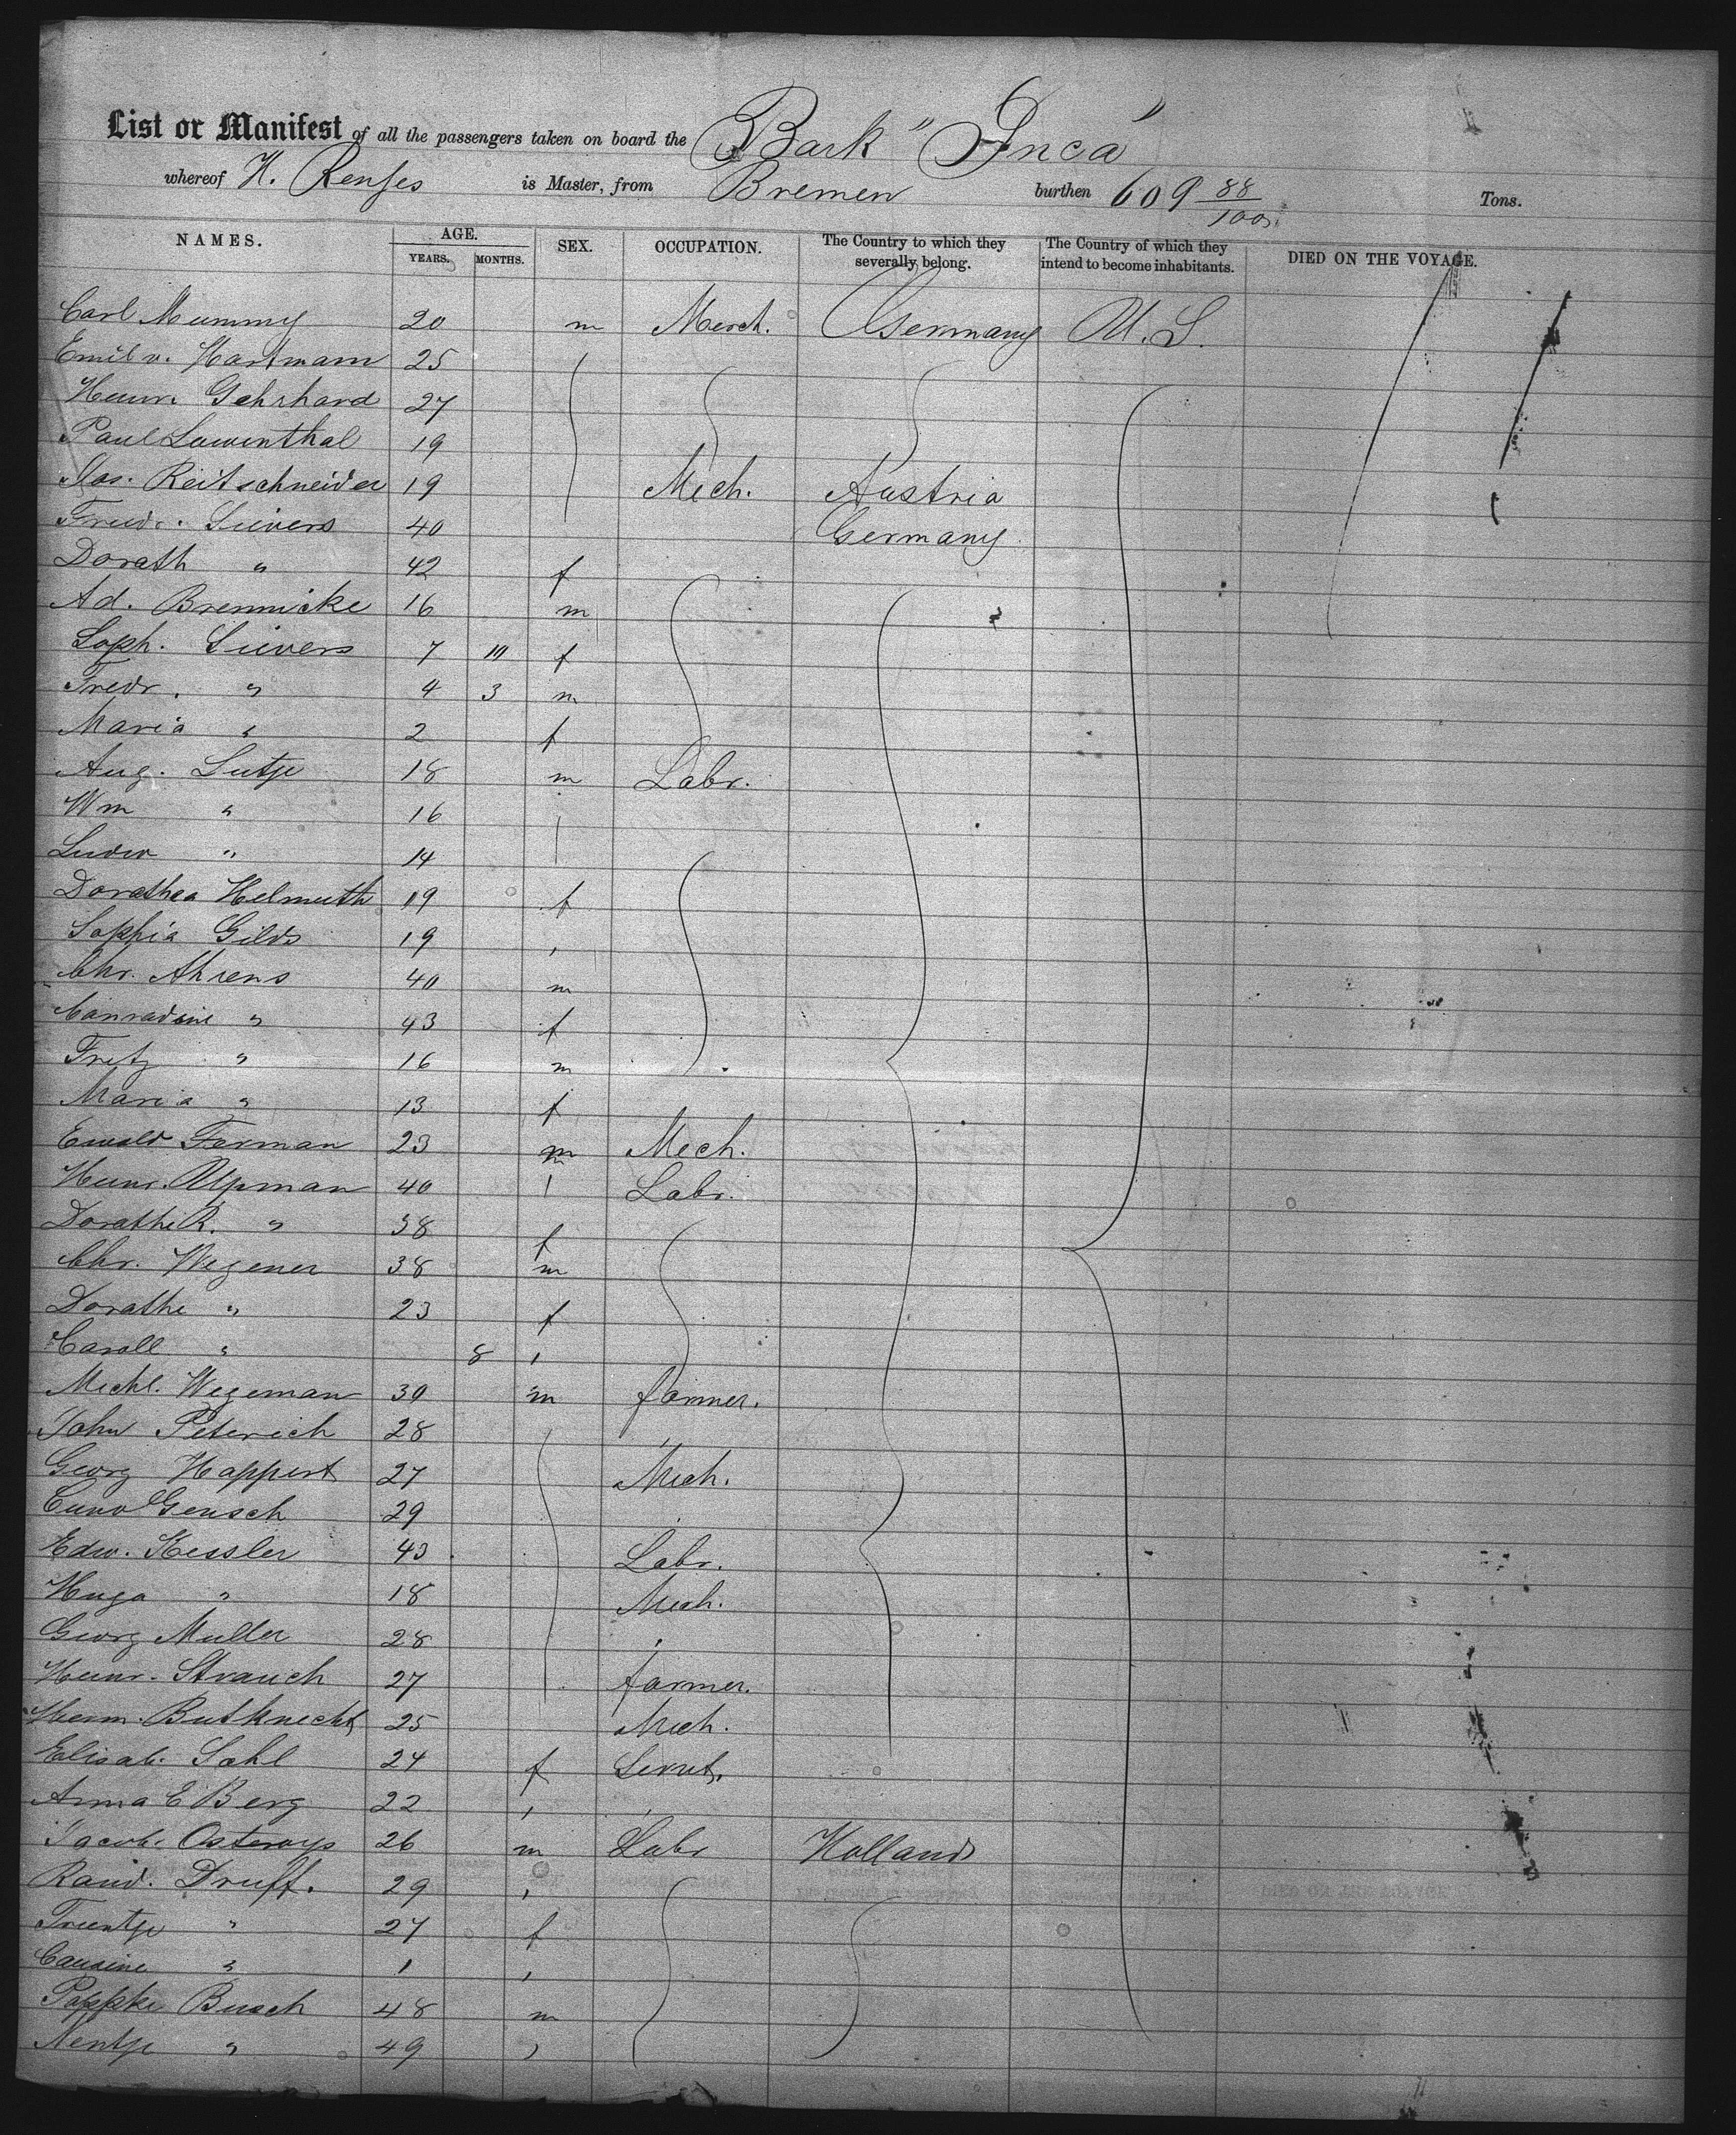 List or Manifest of all the passengers taken on board the Bark "Inca"
whereof H. Renjes is Master, from Bremen burthen 609 88/100 Tons.
NAMES. AGE. SEX. OCCUPATION. The Country to which they severally belong. The Country of which they intend to become inhabitants. DIED ON THE VOYAGE.
YEARS. MONTHS.
Carl Mummy 20 m Merch. Germany U.S.
Emil v. Hartmann 25
Heinr. Gehrhard 27
Paul Lowenthal 19
Jos. Reitschneider 19 Mech. Austria
Friedr. Sievers 40 Germany
Dorath " 42 f
Ad. Brennicke 16 m
Soph. Sievers 7 10 f
Fredr. " 4 3 m
Maria " 2 f
Aug. Lutje 18 m Labr.
Wm " 16
Ludw " 14
Dorathea Helmuth 19 f
Sophia Gilds 19 "
Chr. Ahrens 40 m
Conradine " 43 f
Fritz " 16 m
Maria " 13 f
Ewald Forman 23 m Mech.
Heinr. Upman 40 " Labr.
Dorathe R. " 38 f
Chr. Wegener 38 m
Dorathe " 23 f
Caroll " 8 "
Michl. Wegeman 30 m farmer.
John Peterich 28 "
Georg Happert 27 Mech.
Cuno Gensch 29 "
Edw. Kessler 43 Labr.
Hugo " 18 Mech.
Georg Muller 28 "
Heinr. Strauch 27 farmer.
Herm. Butknecht 25 Mech.
Elisab. Sahl 24 f Servt.
Anna E Berg 22 " "
Jacob. Osterays 26 m Labr Holland
Druff. 29 "
Trientje " 27 f
" 1 "
Poppke Busch 48 m
Nentje " 49 "